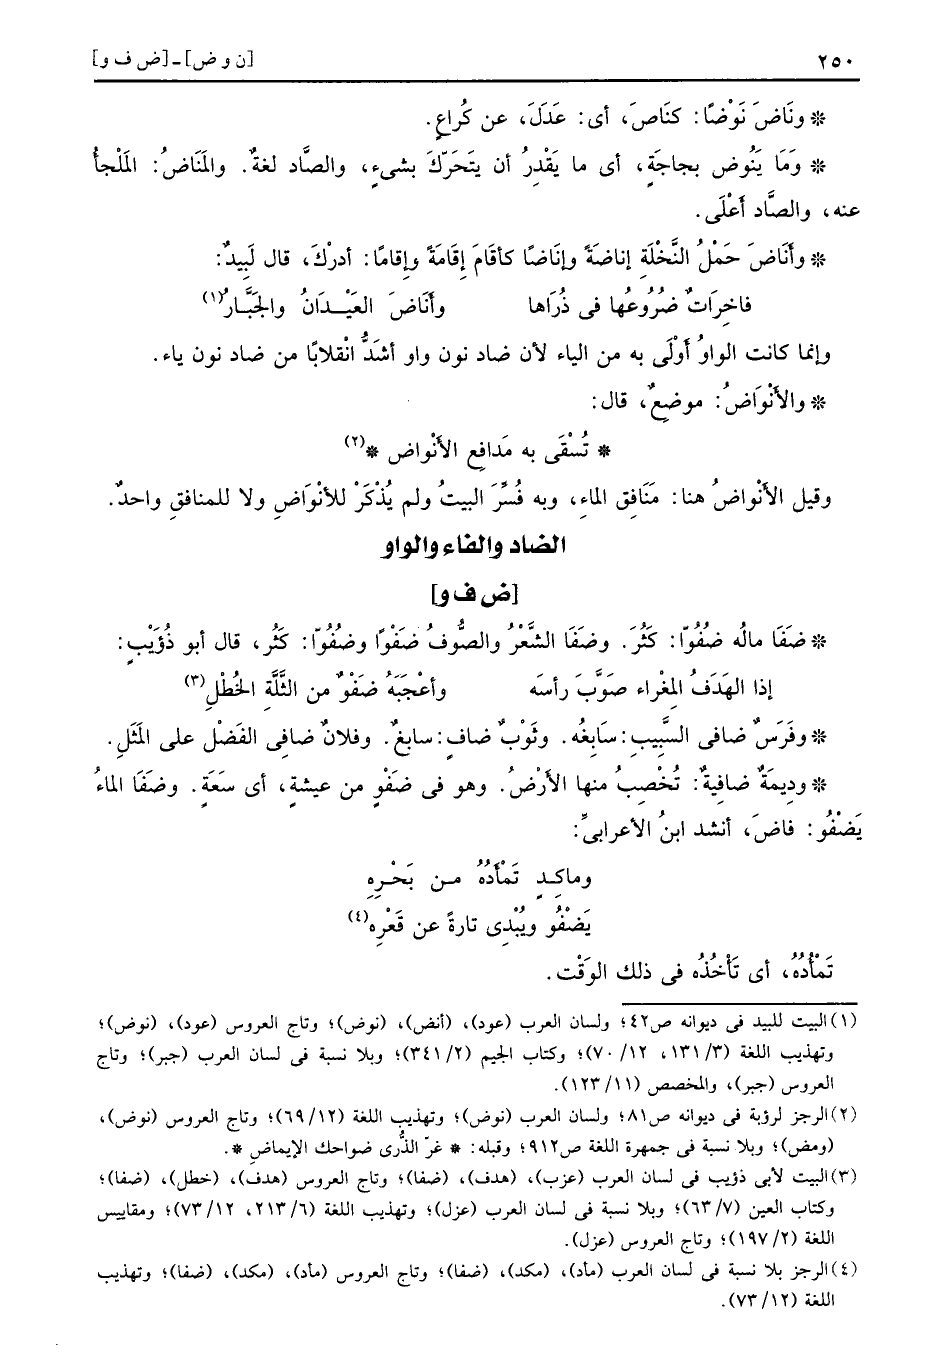 ٢٥٠ [ن و ض] ـ [ض ف و]
* ونَاضَ نَوْضًا: كنَاصَ، أى: عَدَلَ، عن كُراعٍ.
* وَمَا يَنُوض بحاجَةٍ، أى ما يَقْدِرُ أن يتَحَرّكَ بشىءٍ، والصَّاد لغةٌ. والمَنَاضُ: المَلْجأُ
عنه، والصَّاد أعْلَى.
* وأنَاضَ حَمْلُ النَّخْلَةِ إناضَةً وإنَاضًا كأقَامَ إقَامَةً وإقامًا: أدرْكَ، قال لَبِيدٌ:
فاخِرَاتٌ ضُرُوُعُها فى ذُرَاها وأنَاضَ العَيْـدَانُ والجَبَّارُ(١)
وإنما كانت الواوُ أوْلَى به من الياء لأن ضاد نون واو أشَدُّ انْقلابًا من ضاد نون ياء.
* والأنْوَاضُ: موضعٌ، قال:
* تُسْقَى به مَدافِع الأنْواض *(٢)
وقيل الأنْواضُ هنا: مَنَافِق الماءِ، وبه فُسِّرَ البيتُ ولم يُذْكَرْ للأنْوَاضِ ولا للمنافقِ واحدٌ.
الضاد والفاء والواو
[ض ف و]
* ضَفَا مالُه ضُفُوّا: كَثُرَ. وضَفَا الشَّعْرُ والصُّوفُ ضَفْوًا وضُفُوّا: كَثُر، قال أبو ذُؤَيْبٍ:
إذا الهَدَفُ المِغْراء صَوَّبَ رأسَه وأعْجَبَهُ ضَفْوٌ من الثَّلَّةِ الخُطْلِ(٣)
* وفَرَسٌ ضافى السَّبيبِ: سَابِغُه. وثَوْبٌ ضافٍ: سابغٌ. وفلانٌ ضافِى الفَضْل على المَثَلِ.
* ودِيمَةٌ ضافِيةٌ: تُخْصِبُ منها الأرْضُ. وهو فى ضَفْوٍ من عيشةٍ، أى سَعَةٍ. وضَفَا الماءُ
يَضْفُو: فاضَ، أنشد ابنُ الأعرابىِّ:
وماكِـدٍ تَمْأَدُهُ مـن بَحْـرِهِ
يَضْفُو ويُبْدِى تارةً عن قَعْرِه(٤)
تَمْأدُهُ، أى تَأْخُذُه فى ذلك الوَقْت.
(١) البيت للبيد فى ديوانه ص٤٢؛ ولسان العرب (عود)، (أنض)، (نوض)؛ وتاج العروس (عود)، (نوض)؛
وتهذيب اللغة (٣/ ١٣١، ١٢/ ٧٠)؛ وكتاب الجيم (٢/ ٣٤١)؛ وبلا نسبة فى لسان العرب (جبر)؛ وتاج
العروس (جبر)، والمخصص (١١/ ١٢٣).
(٢) الرجز لرؤبة فى ديوانه ص٨١؛ ولسان العرب (نوض)؛ وتهذيب اللغة (١٢/ ٦٩)؛ وتاج العروس (نوض)،
(ومض)؛ وبلا نسبة فى جمهرة اللغة ص٩١٢؛ وقبله: * غرّ الذُّرى ضواحك الإيماضِ *.
(٣) البيت لأبى ذؤيب فى لسان العرب (عزب)، (هدف)، (ضفا)؛ وتاج العروس (هدف)، (خطل)، (ضفا)؛
وكتاب العين (٧/ ٦٣)؛ وبلا نسبة فى لسان العرب (عزل)؛ وتهذيب اللغة (٦/ ٢١٣، ١٢/ ٧٣)؛ ومقاييس
اللغة (٢/ ١٩٧)؛ وتاج العروس (عزل).
(٤) الرجز بلا نسبة فى لسان العرب (مأد)، (مكد)، (ضفا)؛ وتاج العروس (مأد)، (مكد)، (ضفا)؛ وتهذيب
اللغة (١٢/ ٧٣).